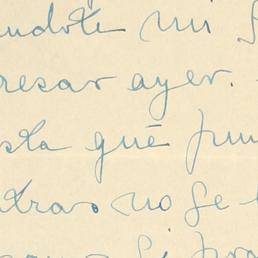 ndote mi
resar ayer.
sta qué pun
tras no se